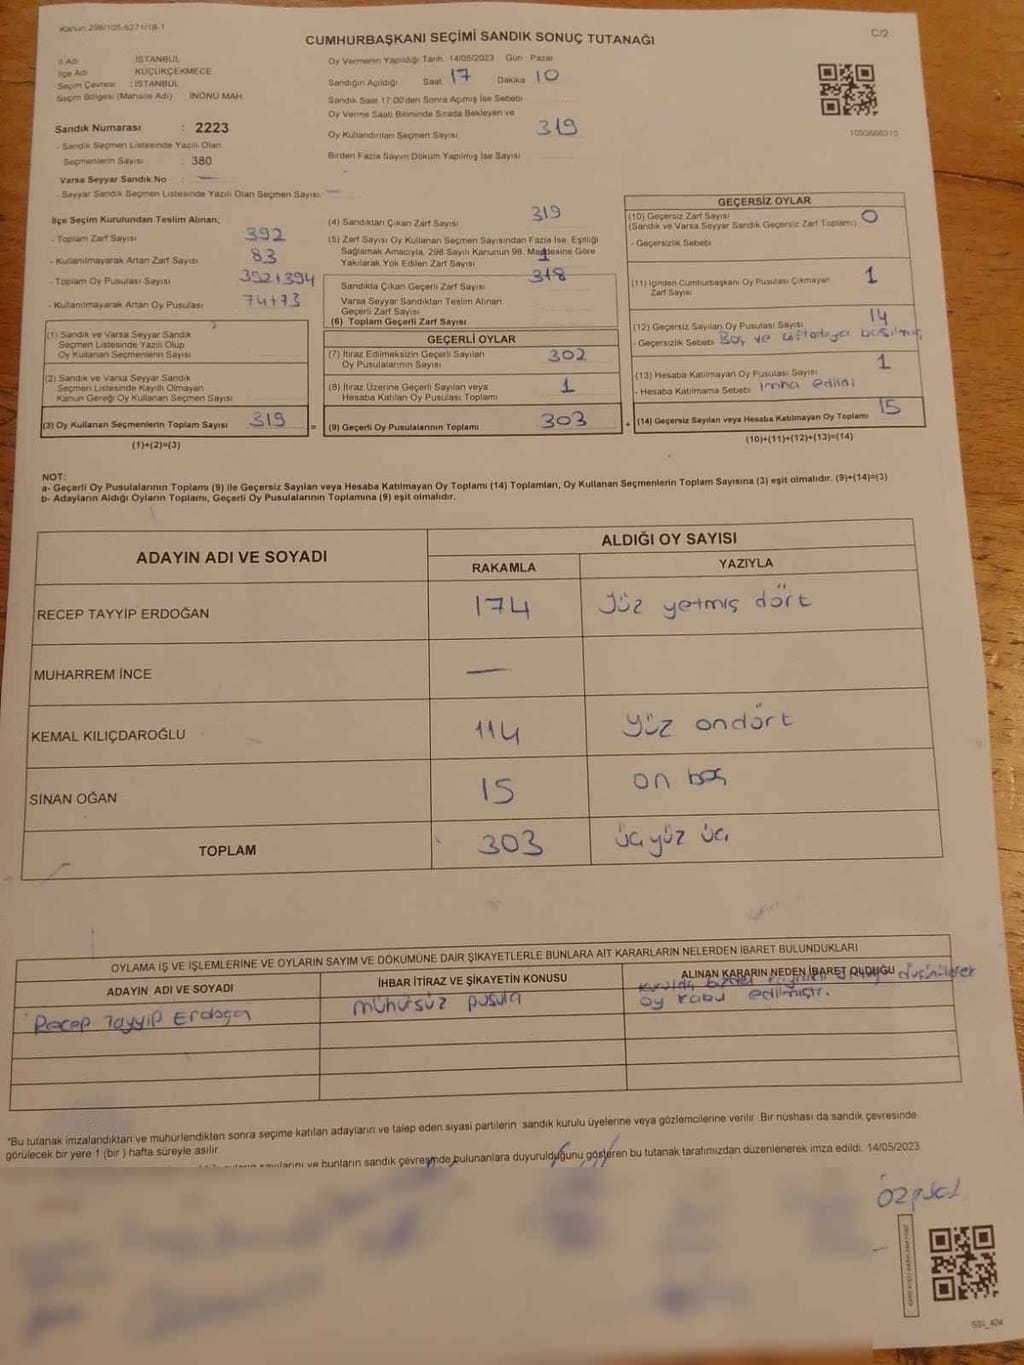 Kanun:298/105,6271/18-1
C/2
CUMHURBAŞKANI SEÇİMİ SANDIK SONUÇ TUTANAĞI
İl Adı : İSTANBUL
İlçe Adı : KÜÇÜKÇEKMECE
Seçim Çevresi : İSTANBUL
Seçim Bölgesi (Mahalle Adı) : İNÖNÜ MAH.
Sandık Numarası : 2223
- Sandık Seçmen Listesinde Yazılı Olan
Seçmenlerin Sayısı : 380
Varsa Seyyar Sandık No : —
- Seyyar Sandık Seçmen Listesinde Yazılı Olan Seçmen Sayısı: —
Oy Vermenin Yapıldığı Tarih 14/05/2023 Gün Pazar
Sandığın Açıldığı Saat 17 Dakika 10
Sandık Saat 17:00'den Sonra Açılmış İse Sebebi
Oy Verme Saati Bitiminde Sırada Bekleyen ve
Oy Kullandırılan Seçmen Sayısı 319
Birden Fazla Sayım Döküm Yapılmış İse Sayısı
1093666310
İlçe Seçim Kurulundan Teslim Alınan;
- Toplam Zarf Sayısı 392
- Kullanılmayarak Artan Zarf Sayısı 83
- Toplam Oy Pusulası Sayısı 392+394
- Kullanılmayarak Artan Oy Pusulası 74+73
(1) Sandık ve Varsa Seyyar Sandık
Seçmen Listesinde Yazılı Olup
Oy Kullanan Seçmenlerin Sayısı
(2) Sandık ve Varsa Seyyar Sandık
Seçmen Listesinde Kayıtlı Olmayan
Kanun Gereği Oy Kullanan Seçmen Sayısı
(3) Oy Kullanan Seçmenlerin Toplam Sayısı 319
(1)+(2)=(3)
(4) Sandıktan Çıkan Zarf Sayısı 319
(5) Zarf Sayısı Oy Kullanan Seçmen Sayısından Fazla İse, Eşitliği
Sağlamak Amacıyla, 298 Sayılı Kanunun 98. Maddesine Göre
Yakılarak Yok Edilen Zarf Sayısı 1
Sandıkta Çıkan Geçerli Zarf Sayısı 318
Varsa Seyyar Sandıktan Teslim Alınan
Geçerli Zarf Sayısı
(6) Toplam Geçerli Zarf Sayısı
GEÇERLİ OYLAR
(7) İtiraz Edilmeksizin Geçerli Sayılan
Oy Pusulalarının Sayısı 302
(8) İtiraz Üzerine Geçerli Sayılan veya
Hesaba Katılan Oy Pusulası Toplamı 1
= (9) Geçerli Oy Pusulalarının Toplamı 303
GEÇERSİZ OYLAR
(10) Geçersiz Zarf Sayısı 0
(Sandık ve Varsa Seyyar Sandık Geçersiz Zarf Toplamı)
- Geçersizlik Sebebi
(11) İçinden Cumhurbaşkanı Oy Pusulası Çıkmayan
Zarf Sayısı 1
(12) Geçersiz Sayılan Oy Pusulası Sayısı 14
- Geçersizlik Sebebi Boş ve çift adaya basılmış
(13) Hesaba Katılmayan Oy Pusulası Sayısı 1
- Hesaba Katılmama Sebebi imha edilni
+ (14) Geçersiz Sayılan veya Hesaba Katılmayan Oy Toplamı 15
(10)+(11)+(12)+(13)=(14)
NOT:
a- Geçerli Oy Pusulalarının Toplamı (9) ile Geçersiz Sayılan veya Hesaba Katılmayan Oy Toplamı (14) Toplamları, Oy Kullanan Seçmenlerin Toplam Sayısına (3) eşit olmalıdır. (9)+(14)=(3)
b- Adayların Aldığı Oyların Toplamı, Geçerli Oy Pusulalarının Toplamına (9) eşit olmalıdır.
ADAYIN ADI VE SOYADI
ALDIĞI OY SAYISI
RAKAMLA YAZIYLA
RECEP TAYYİP ERDOĞAN 174 Yüz yetmiş dört
MUHARREM İNCE —
KEMAL KILIÇDAROĞLU 114 Yüz ondört
SİNAN OĞAN 15 on beş
TOPLAM 303 üçyüz üç
OYLAMA İŞ VE İŞLEMLERİNE VE OYLARIN SAYIM VE DÖKÜMÜNE DAİR ŞİKAYETLERLE BUNLARA AİT KARARLARIN NELERDEN İBARET BULUNDUKLARI
ADAYIN ADI VE SOYADI
İHBAR İTİRAZ VE ŞİKAYETİN KONUSU
ALINAN KARARIN NEDEN İBARET OLDUĞU
Recep Tayyip Erdoğan
mühürsüz pusula
düşünülerek
oy kabul edilmiştir.
"Bu tutanak imzalandıktan ve mühürlendikten sonra seçime katılan adayların ve talep eden siyasi partilerin sandık kurulu üyelerine veya gözlemcilerine verilir. Bir nüshası da sandık çevresinde
görülecek bir yere 1 (bir) hafta süreyle asılır.
ve bunların sandık çevresinde bulunanlara duyurulduğunu gösteren bu tutanak tarafımızdan düzenlenerek imza edildi. 14/05/2023